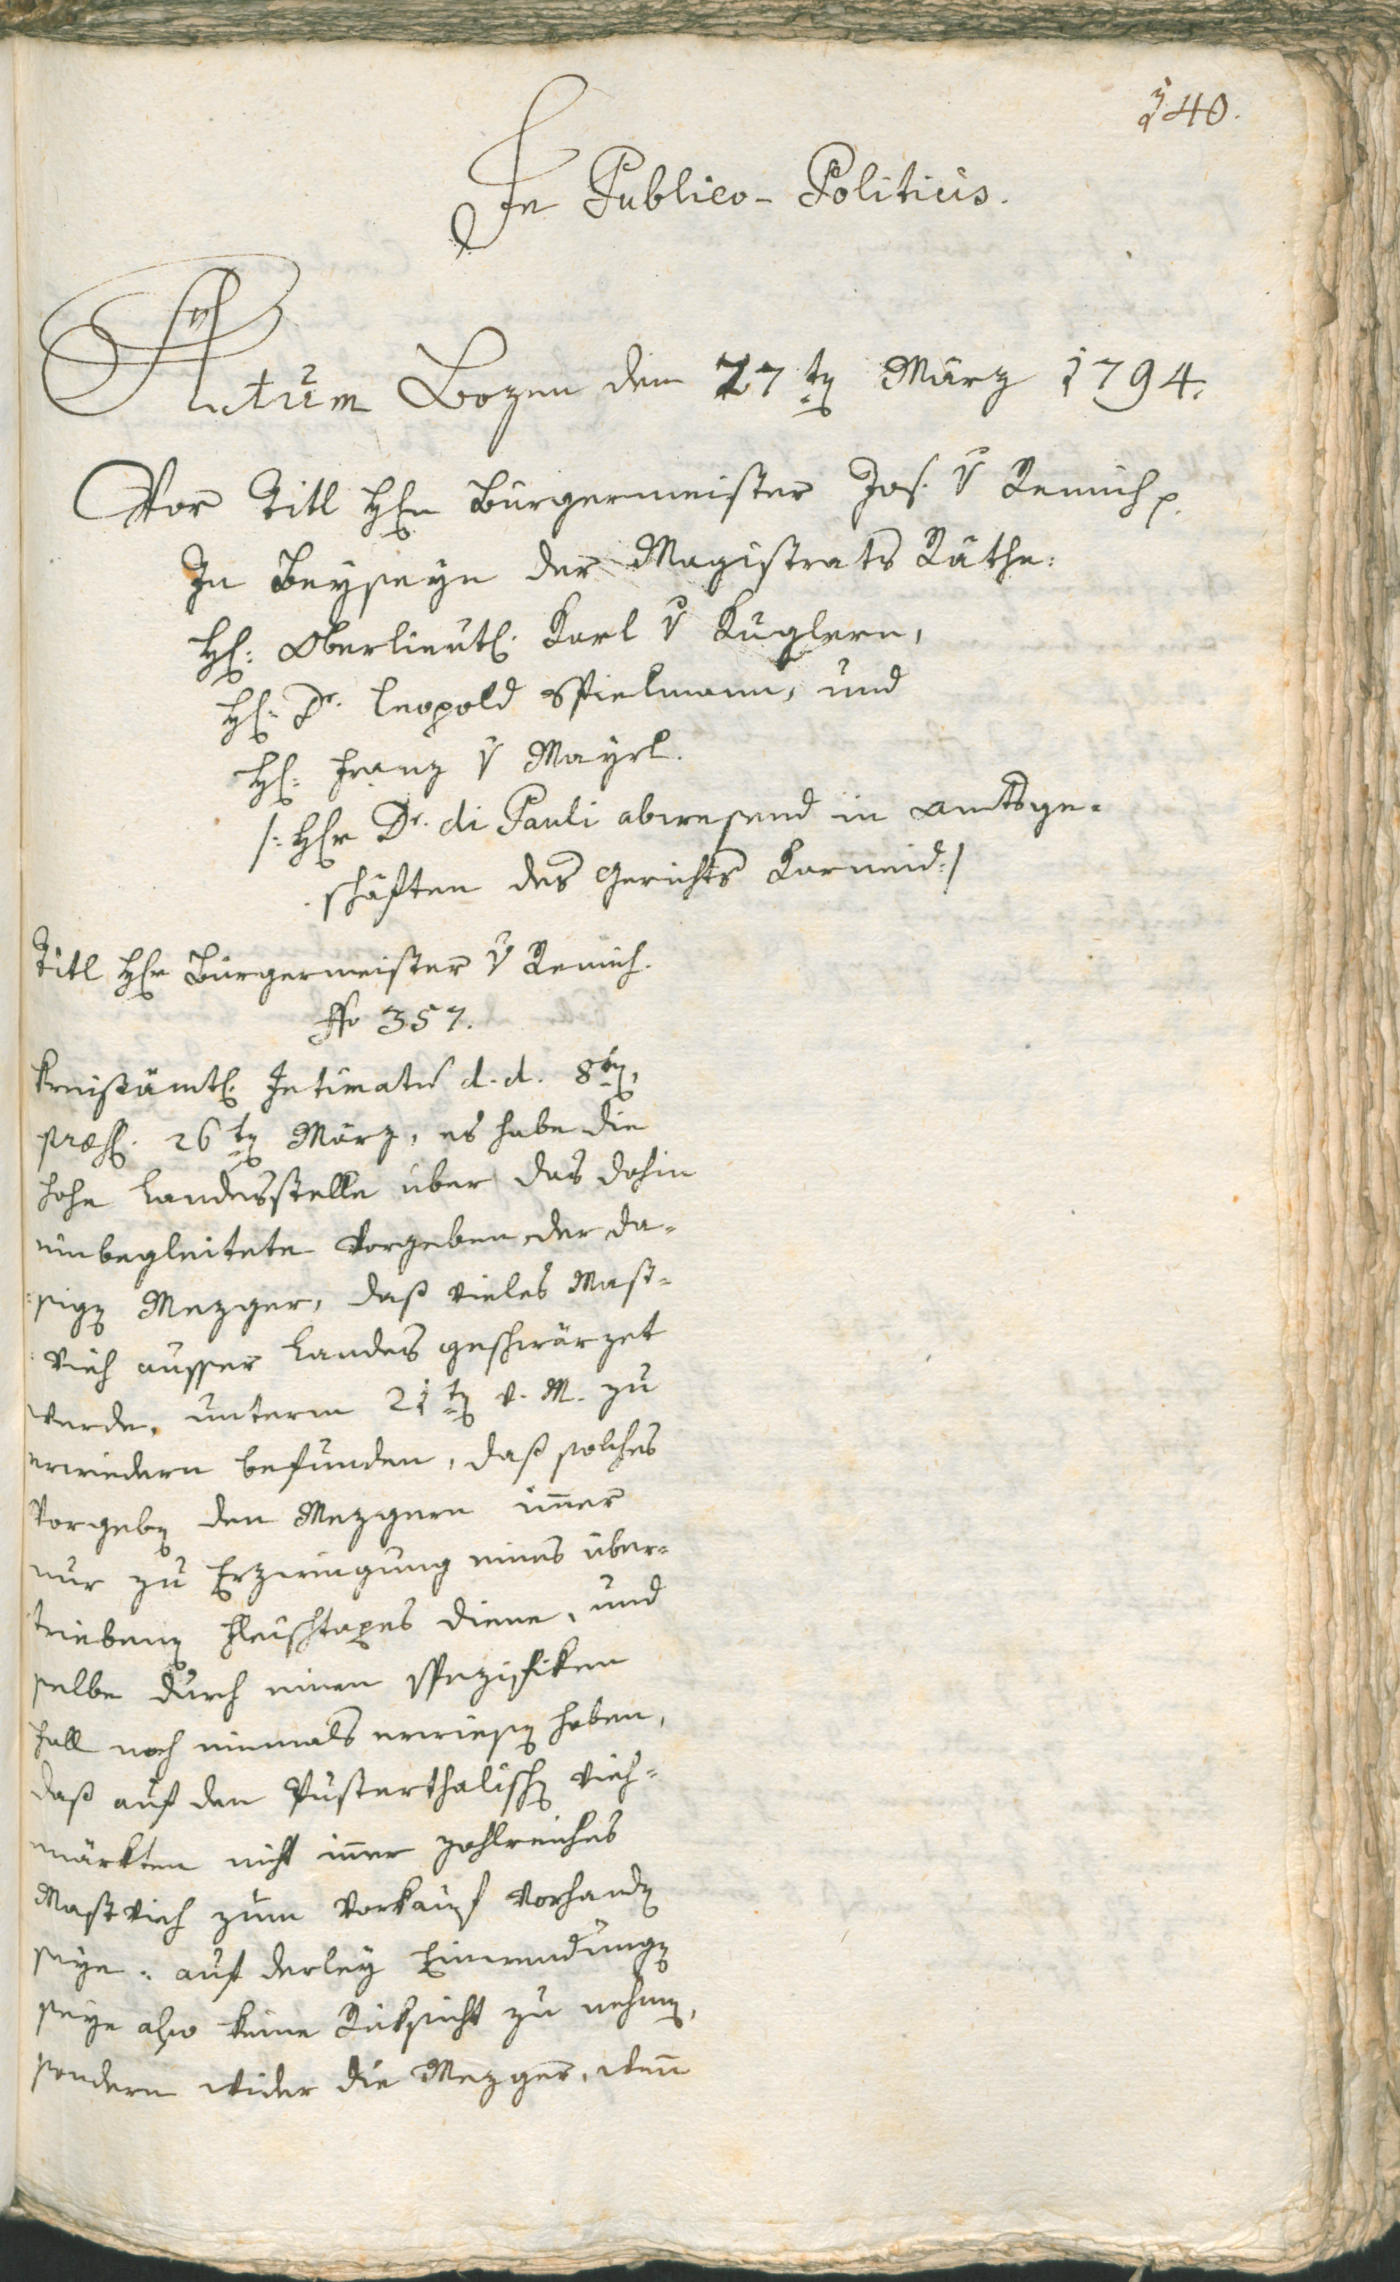 140.
In Publico-Politicis.
Actum Bozen den 27ten März 1794.
Vor Titl Hrn Bürgermeister Jos. v Remich p.
In Beyseyn der Magistrats Räthe:
H: Oberlieutl. Karl v Kuglern,
H: Dr. Leopold Spielmann, und
H: Franz v Mayrl.
/: Hr Dr. di Pauli abwesend in Amtsge-
schäften des Gerichts Karneid :/
Titl Hr Bürgermeister v Remich.
No 357.
Kreisämtl. Intimatum d. d. 8ten,
præs. 26ten März, es habe die
hohe Landesstelle über das dahin
einbegleitete Vorgeben der da-
sigen Mezger, daß vieles Mast-
vieh ausser Landes geschwärzet
werde, unterm 21ten v. M. zu
erwiedern befunden, daß solches
Vorgeben den Mezgern imer
nur zu Erzwingung eines über-
triebenen Fleischtaxes diene, und
selbe durch einen spezifiken
Fall noch niemals erwiesen haben,
daß auf den Pusterthalischen Vieh-
märkten nicht imer zahlreiches
Mastvieh zum Verkauf vorhanden
seye: auf derley Einwendungen
seye also keine Rüksicht zu nehmen,
sondern wider die Mezger, wen